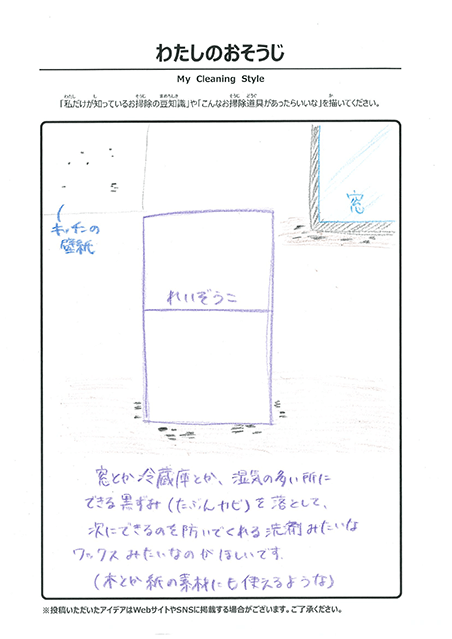 わたしのおそうじ
My Cleaning Style
「私だけが知っているお掃除の豆知識」や「こんなお掃除道具があったらいいな」を描いてください。
窓
キッチンの
壁紙
れいぞうこ
窓とか冷蔵庫とか、湿気の多い所に
できる黒ずみ(たぶんカビ)を落として、
次にできるのを防いでくれる洗剤みたいな
ワックスみたいなのがほしいです.
(木とか紙の素材にも使えるような)
※投稿いただいたアイデアはWebサイトやSNSに掲載する場合がございます。ご了承ください。